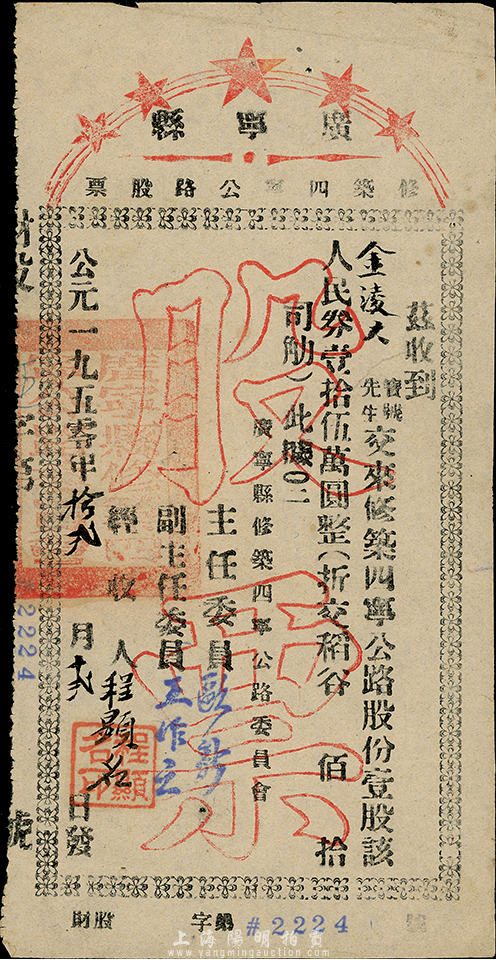 廣寧縣
修築四寧公路股票
股票
茲收到
金凌大
寶號
先生
交來修築四寧公路股份壹股該
人民券壹拾伍萬圓整(折交稻谷 佰 拾
司觔)此據
廣寧縣修築四寧公路委員會
主任委員
副主任委員
經收人程顯名
公元一九五零年拾弍月十弍日發
財股 字第 #2224 號
#2224
號
上海陽明拍賣
www.yangmingauction.com